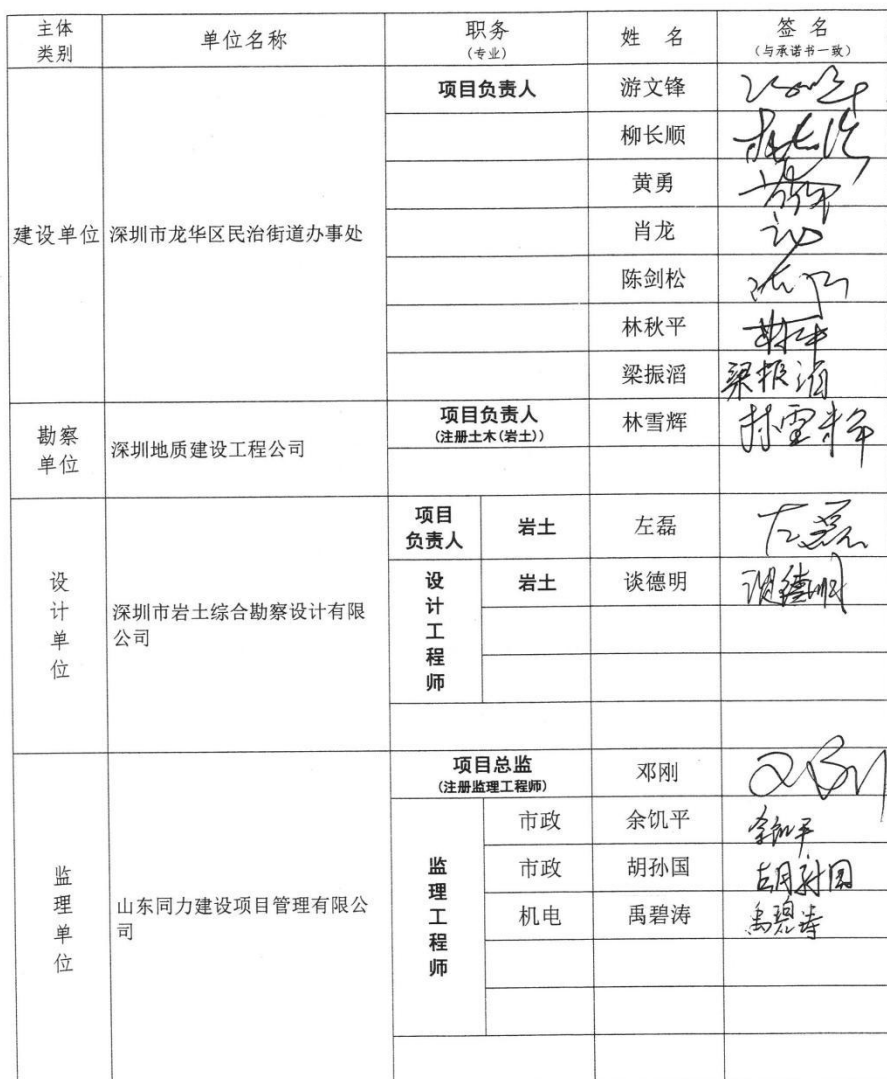 主体类别 单位名称 职务(专业) 姓 名 签 名(与承诺书一致)
建设单位 深圳市龙华区民治街道办事处 项目负责人 游文锋
柳长顺
黄勇
肖龙
陈剑松
林秋平
梁振滔 梁振滔
勘察单位 深圳地质建设工程公司 项目负责人(注册土木(岩土)) 林雪辉 林雪辉
设计单位 深圳市岩土综合勘察设计有限公司 项目负责人 岩土 左磊 左磊
设计工程师 岩土 谈德明 谈德明
监理单位 山东同力建设项目管理有限公司 项目总监(注册监理工程师) 邓刚
监理工程师 市政 余饥平 余饥平
市政 胡孙国 胡孙国
机电 禹碧涛 禹碧涛